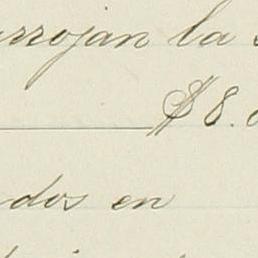 arrojan la
$8.
dos en